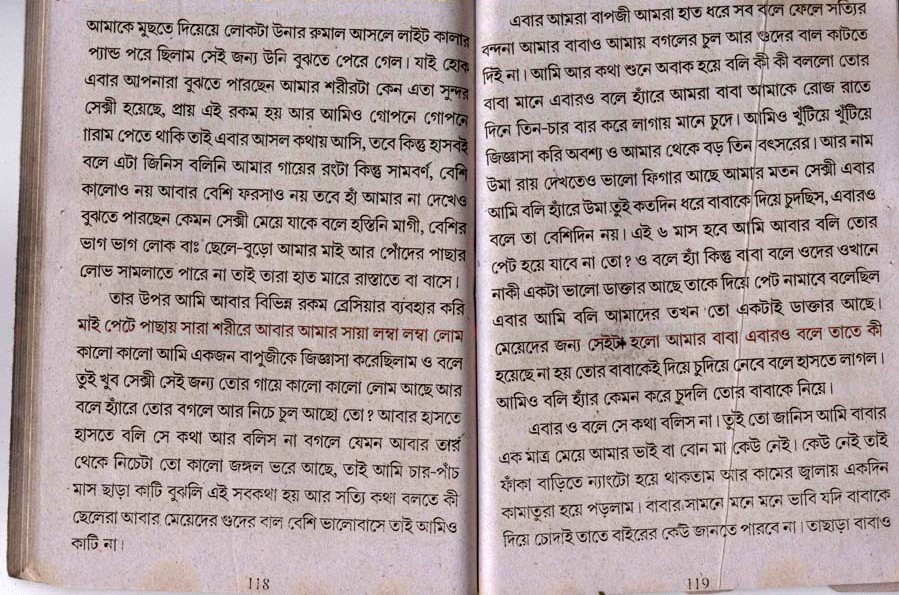 আমাকে মুছতে দিয়েয়ে লোকটা উনার রুমাল আসলে লাইট কালার
প্যান্ড পরে ছিলাম সেই জন্য উনি বুঝতে পেরে গেল। যাই হোক
এবার আপনারা বুঝতে পারছেন আমার শরীরটা কেন এতা সুন্দর
সেক্সী হয়েছে, প্রায় এই রকম হয় আর আমিও গোপনে গোপনে
গরাম পেতে থাকি তাই এবার আসল কথায় আসি, তবে কিন্তু হাসবই
বলে এটা জিনিস বলিনি আমার গায়ের রংটা কিন্তু সামবর্ণ, বেশি
কালোও নয় আবার বেশি ফরসাও নয় তবে হাঁ আমার না দেখেও
বুঝতে পারছেন কেমন সেক্সী মেয়ে যাকে বলে হস্তিনি মাগী, বেশির
ভাগ ভাগ লোক বাঃ ছেলে-বুড়ো আমার মাই আর পোঁদের পাছার
লোভ সামলাতে পারে না তাই তারা হাত মারে রাস্তাতে বা বাসে।
তার উপর আমি আবার বিভিন্ন রকম ব্রেসিয়ার ব্যবহার করি
মাই পেটে পাছায় সারা শরীরে আবার আমার সায়া লম্বা লম্বা লোম
কালো কালো আমি একজন বাপুজীকে জিজ্ঞাসা করেছিলাম ও বলে
তুই খুব সেক্সী সেই জন্য তোর গায়ে কালো কালো লোম আছে আর
বলে হ্যাঁরে তোর বগলে আর নিচে চুল আছো তো? আবার হাসতে
হাসতে বলি সে কথা আর বলিস না বগলে যেমন আবার তার
থেকে নিচেটা তো কালো জঙ্গল ভরে আছে, তাই আমি চার-পাঁচ
মাস ছাড়া কাটি বুঝলি এই সবকথা হয় আর সত্যি কথা বলতে কী
ছেলেরা আবার মেয়েদের গুদের বাল বেশি ভালোবাসে তাই আমিও
কাটি না।
118
এবার আমরা বাপজী আমরা হাত ধরে সব বলে ফেলে সত্যির
বন্দনা আমার বাবাও আমায় বগলের চুল আর গুদের বাল কাটতে
দিই না। আমি আর কথা শুনে অবাক হয়ে বলি কী কী বললো তোর
বাবা মানে এবারও বলে হ্যাঁরে আমরা বাবা আমাকে রোজ রাতে
দিনে তিন-চার বার করে লাগায় মানে চুদে। আমিও খুঁটিয়ে খুঁটিয়ে
জিজ্ঞাসা করি অবশ্য ও আমার থেকে বড় তিন বৎসরের। আর নাম
উমা রায় দেখতেও ভালো ফিগার আছে আমার মতন সেক্সী এবার
আমি বলি হ্যাঁরে উমা তুই কতদিন ধরে বাবাকে দিয়ে চুদছিস, এবারও
বলে তা বেশিদিন নয়। এই ৬ মাস হবে আমি আবার বলি তোর
পেট হয়ে যাবে না তো? ও বলে হ্যাঁ কিন্তু বাবা বলে ওদের ওখানে
নাকী একটা ভালো ডাক্তার আছে তাকে দিয়ে পেট নামাবে বলেছিল
এবার আমি বলি আমাদের তখন তো একটাই ডাক্তার আছে।
মেয়েদের জন্য সেইটা হলো আমার বাবা এবারও বলে তাতে কী
হয়েছে না হয় তোর বাবাকেই দিয়ে চুদিয়ে নেবে বলে হাসতে লাগল।
আমিও বলি হ্যাঁর কেমন করে চুদলি তোর বাবাকে নিয়ে।
এবার ও বলে সে কথা বলিস না। তুই তো জানিস আমি বাবার
এক মাত্র মেয়ে আমার ভাই বা বোন মা কেউ নেই। কেউ নেই তাই
ফাঁকা বাড়িতে ন্যাংটো হয়ে থাকতাম আর কামের জ্বালায় একদিন
কামাতুরা হয়ে পড়লাম। বাবার সামনে মনে মনে ভাবি যদি বাবাকে
দিয়ে চোদাই তাতে বাইরের কেউ জানতে পারবে না। তাছাড়া বাবাও
119